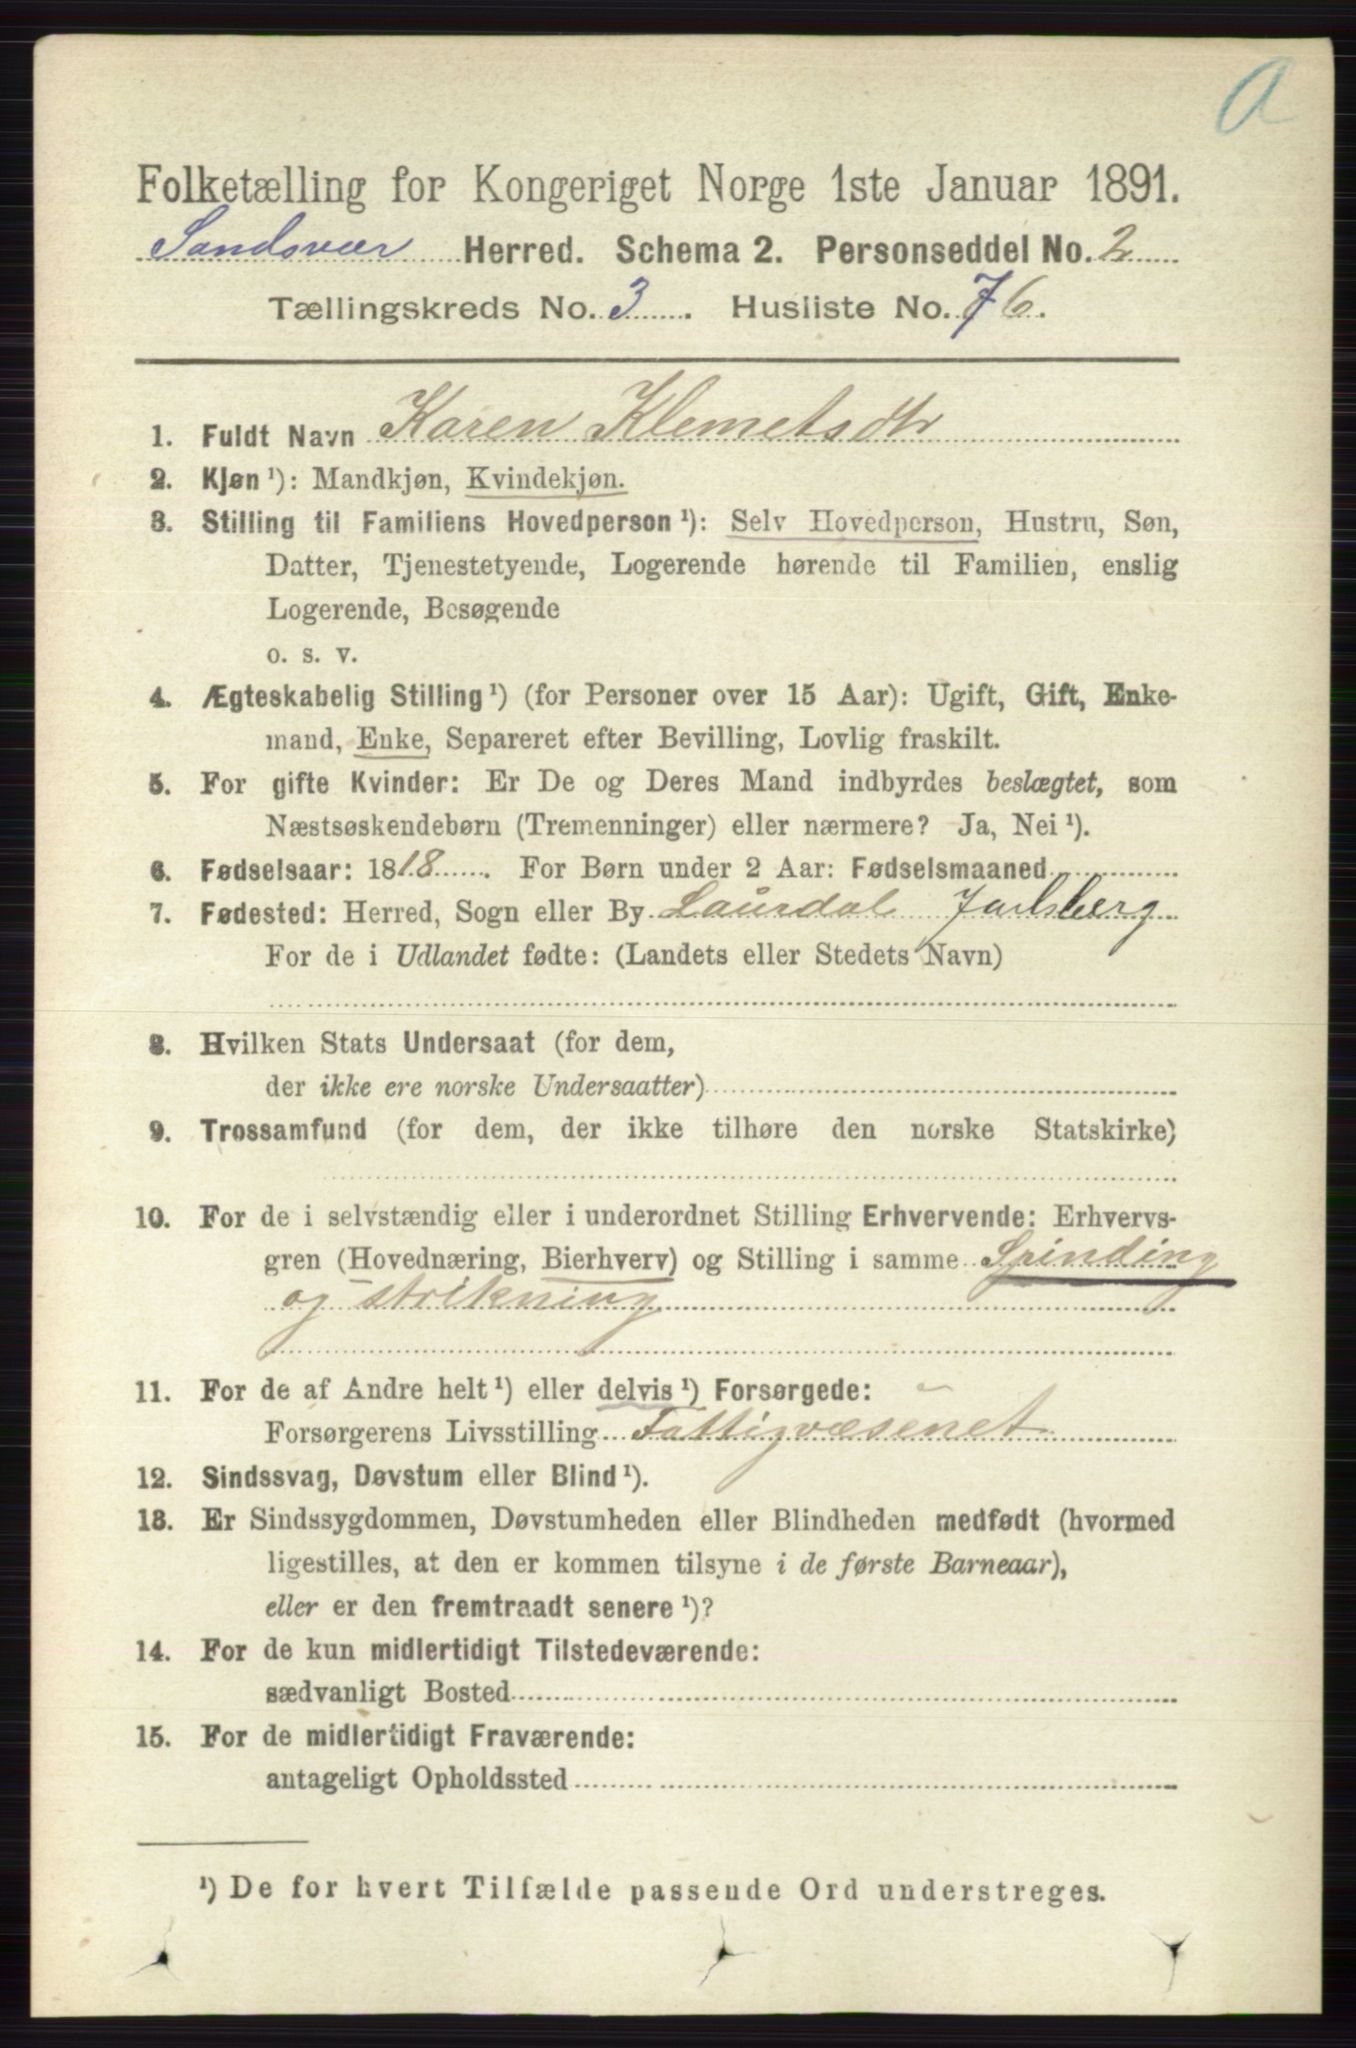 a
Folketælling for Kongeriget Norge 1ste Januar 1891.
Sandsvær Herred. Schema 2. Personseddel No. 2
Tællingskreds No. 3. Husliste No. 76.
1. Fuldt Navn Karen Klemetsdtr
2. Kjøn ¹): Mandkjøn, Kvindekjøn.
3. Stilling til Familiens Hovedperson ¹): Selv Hovedperson, Hustru, Søn,
Datter, Tjenestetyende, Logerende hørende til Familien, enslig
Logerende, Besøgende
o. s. v.
4. Ægteskabelig Stilling ¹) (for Personer over 15 Aar): Ugift, Gift, Enke-
mand, Enke, Separeret efter Bevilling, Lovlig fraskilt.
5. For gifte Kvinder: Er De og Deres Mand indbyrdes beslægtet, som
Næstsøskendebørn (Tremenninger) eller nærmere? Ja, Nei ¹).
6. Fødselsaar: 1818. For Børn under 2 Aar: Fødselsmaaned
7. Fødested: Herred, Sogn eller By Laurdal Jarlsberg
For de i Udlandet fødte: (Landets eller Stedets Navn)
8. Hvilken Stats Undersaat (for dem,
der ikke ere norske Undersaatter)
9. Trossamfund (for dem, der ikke tilhøre den norske Statskirke)
10. For de i selvstændig eller i underordnet Stilling Erhvervende: Erhvervs-
gren (Hovednæring, Bierhverv) og Stilling i samme Spinding
og strikning
11. For de af Andre helt ¹) eller delvis ¹) Forsørgede:
Forsørgerens Livsstilling Fattigvæsenet
12. Sindssvag, Døvstum eller Blind ¹).
13. Er Sindssygdommen, Døvstumheden eller Blindheden medfødt (hvormed
ligestilles, at den er kommen tilsyne i de første Barneaar),
eller er den fremtraadt senere ¹)?
14. For de kun midlertidigt Tilstedeværende:
sædvanligt Bosted
15. For de midlertidigt Fraværende:
antageligt Opholdssted
¹) De for hvert Tilfælde passende Ord understreges.